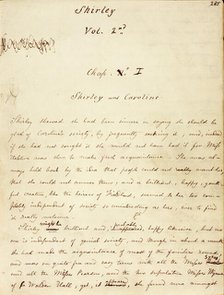 Shirley
Vol. 2nd
Chap. I
Shirley and Caroline
Shirley shewed she had been sincere in saying she should be
glad of Caroline's society, by frequently seeking it; and, indeed
if she had not sought it she would not have had it for Miss
Helstone was slow to make fresh acquaintance. She was al-
ways held back by the idea that people could not want her
she could not amuse them; and a brilliant, happy, youth-
ful creature, like the heiress of Fieldhead, seemed to her too com-
pletely independent of society so uninteresting as hers, ever to find
it really welcome
Shirley might be brilliant and happy likewise, but no
one is independent of genial society; and though in about a month
she had made the acquaintance of most of the families round
and was on quite free and easy terms with all the Misses Sykes
and all the Misses Pearson, and the two superlative Misses Wynne
of Walden Hall, yet, it appeared, she found none amongst